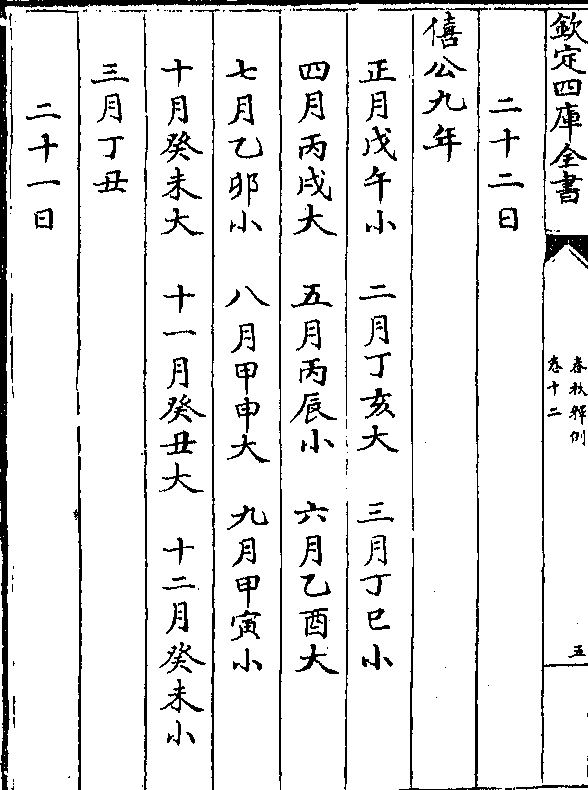 欽定四庫全書
春秋釋例
卷十二
五
二十二日
僖公九年
正月戊午小 二月丁亥大 三月丁巳小
四月丙戌大 五月丙辰小 六月乙酉大
七月乙卯小 八月甲申大 九月甲寅小
十月癸未大 十一月癸丑大 十二月癸未小
三月丁丑
二十一日